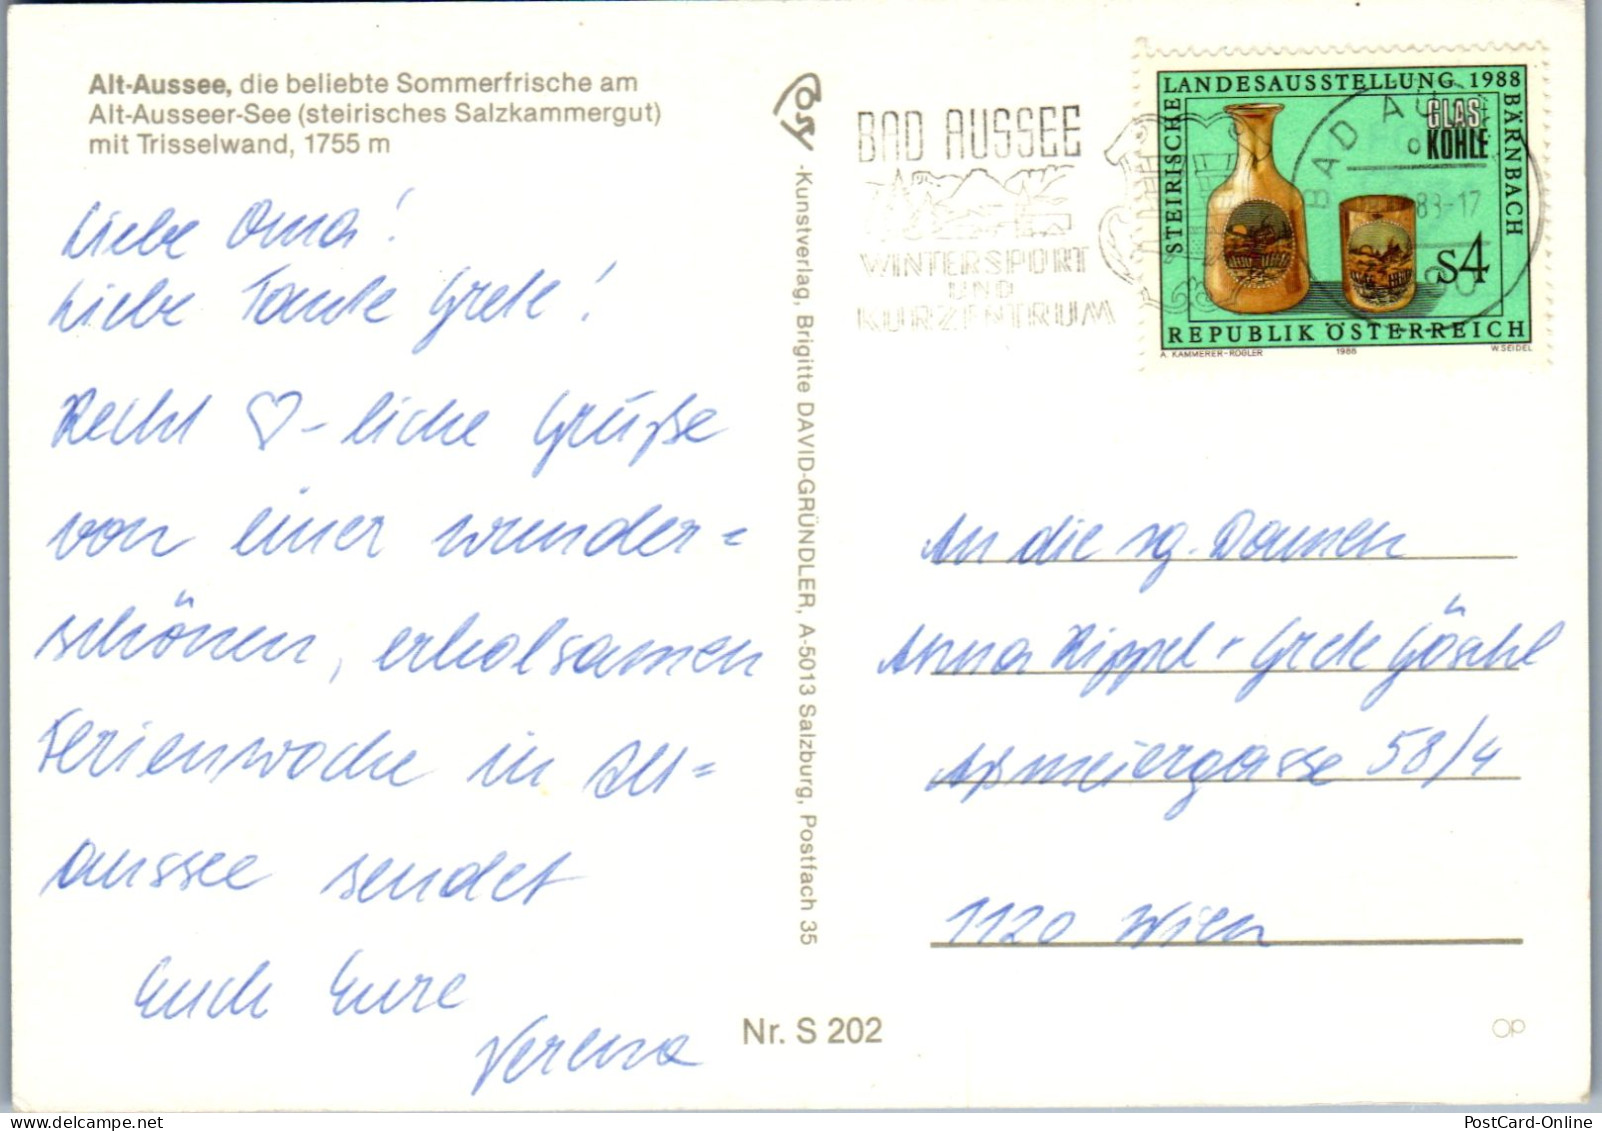 Alt-Aussee, die beliebte Sommerfrische am
Alt-Ausseer-See (steirisches Salzkammergut)
mit Trisselwand, 1755 m
Liebe Oma!
Liebe Tante Grete!
Recht ♡-liche Grüße
von einer wunder=
schönen, erholsamen
Ferienwoche in Alt=
aussee sendet
Euch Eure
Verena
-Kunstverlag, Brigitte DAVID-GRÜNDLER, A-5013 Salzburg, Postfach 35
Nr. S 202
BAD AUSSEE
WINTERSPORT
UND
KURZENTRUM
STEIRISCHE
LANDESAUSSTELLUNG 1988
BÄRNBACH
GLAS
KOHLE
S4
REPUBLIK ÖSTERREICH
A. KAMMERER-ROGLER 1988 W. SEIDEL
BAD AUSSEE
88-17
An die sg. Damen
Anna Rippel + Grete Göschl
Aßmeiergasse 58/4
1120 Wien
OP
PostCard-Online